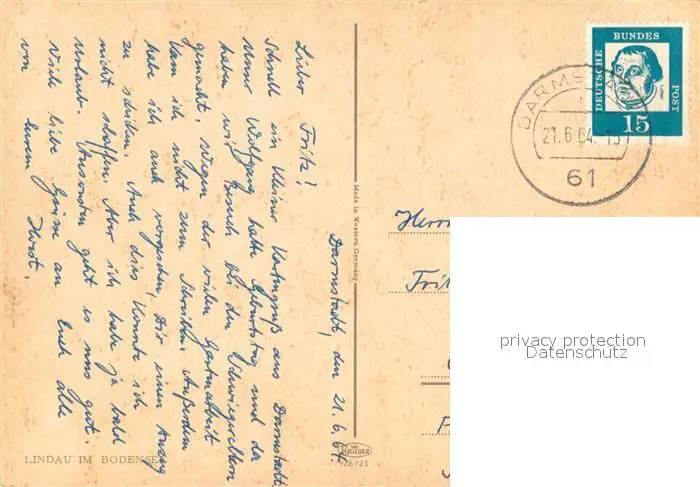 Darmstadt, den 21.6.64.
Lieber Fritz!
Schnell ein kleiner Kartengruß aus Darmstadt.
Unser Wolfgang hatte Geburtstag und da
haben wir Besuch bei den Schwiegereltern
gemacht. Wegen der vielen Gartenarbeit
kam ich nicht zum Schreiben. Außerdem
habe ich auch vorgesehen, Dir einen Anzug
zu schicken. Auch dies konnte ich
nicht schaffen. Aber ich habe ja bald
Urlaub. Ansonsten geht es uns gut.
Viele liebe Grüße an Euch alle
von Eurem Horst.
LINDAU IM BODENSEE
Made in Western Germany
KRÜGER
926/21
DEUTSCHE BUNDES POST
15
DARMSTADT
21.6.64
61
Herrn
Frit
privacy protection
Datenschutz